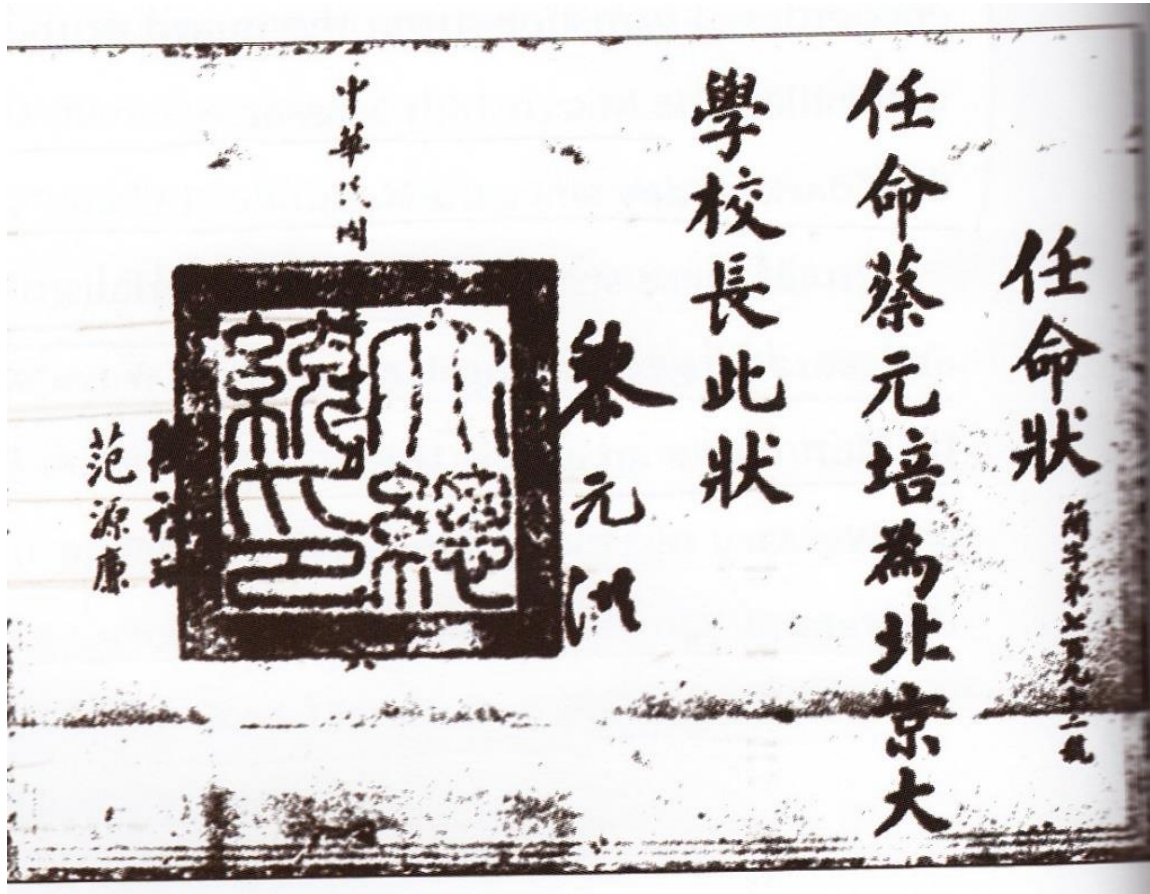 任命状
簡字第七百九十二號
任命蔡元培為北京大
學校長此状
黎元洪
大總統印
中華民國
范源廉